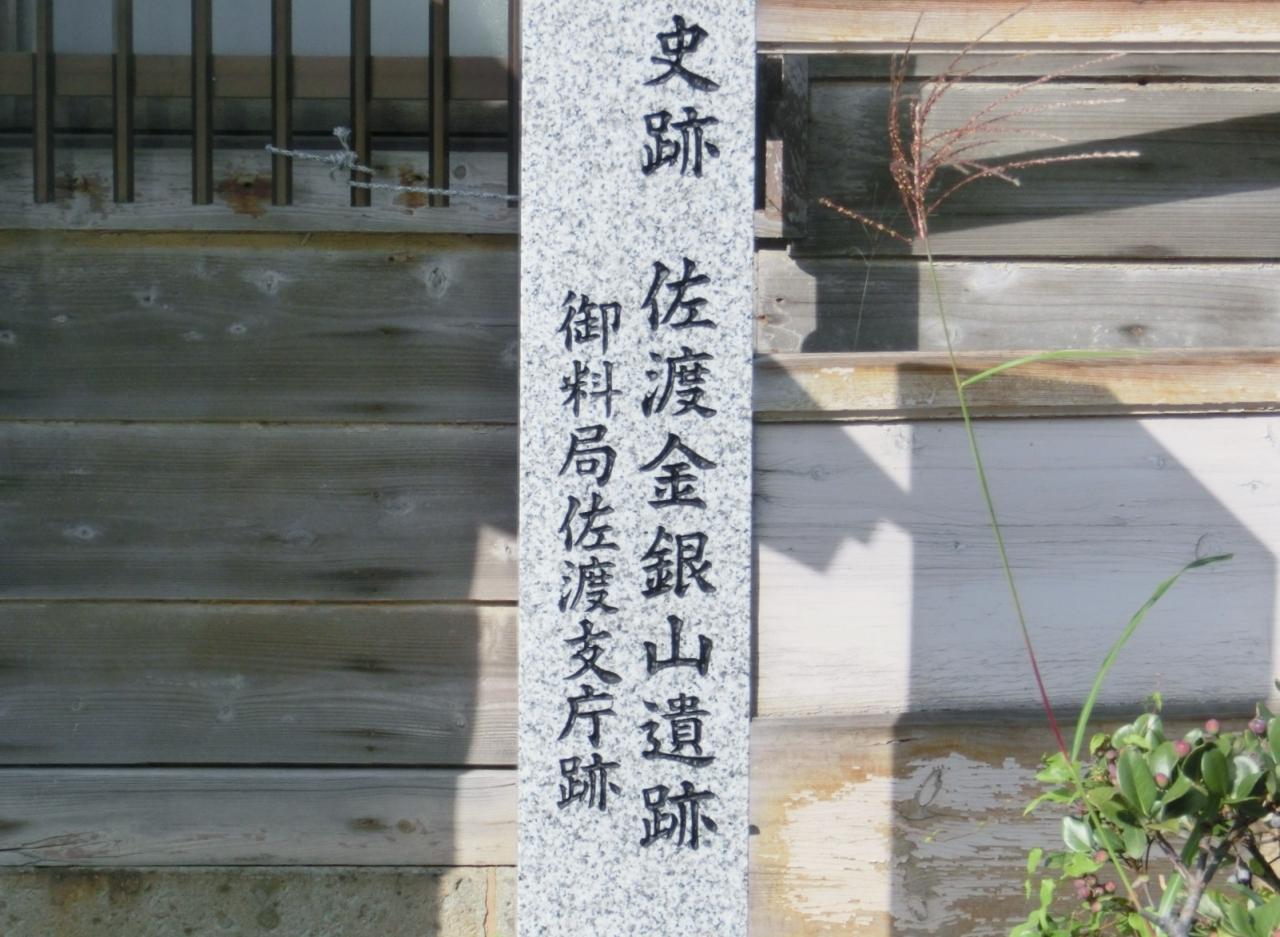 史跡 佐渡金銀山遺跡
御料局佐渡支庁跡